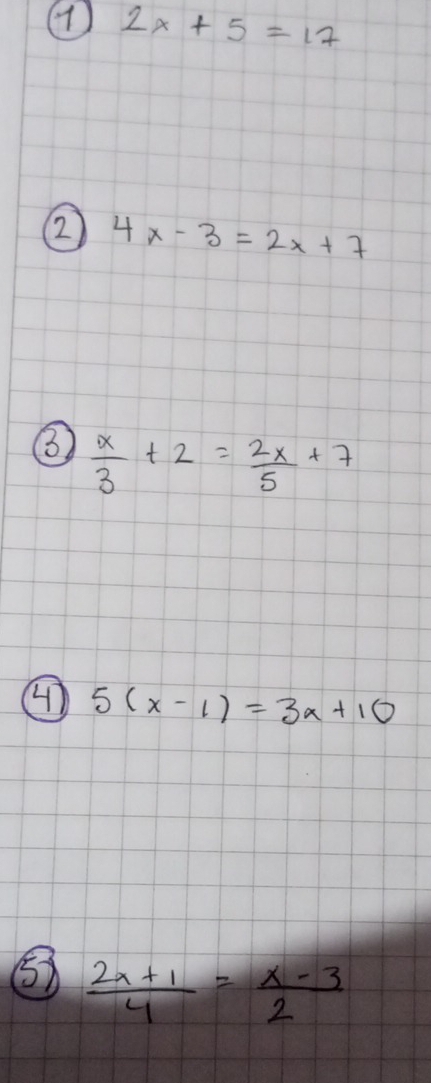 1) 2x + 5 = 17
2) 4x - 3 = 2x + 7
3) x/3 + 2 = 2x/5 + 7
4) 5(x - 1) = 3x + 10
5) (2x + 1)/4 = (x - 3)/2